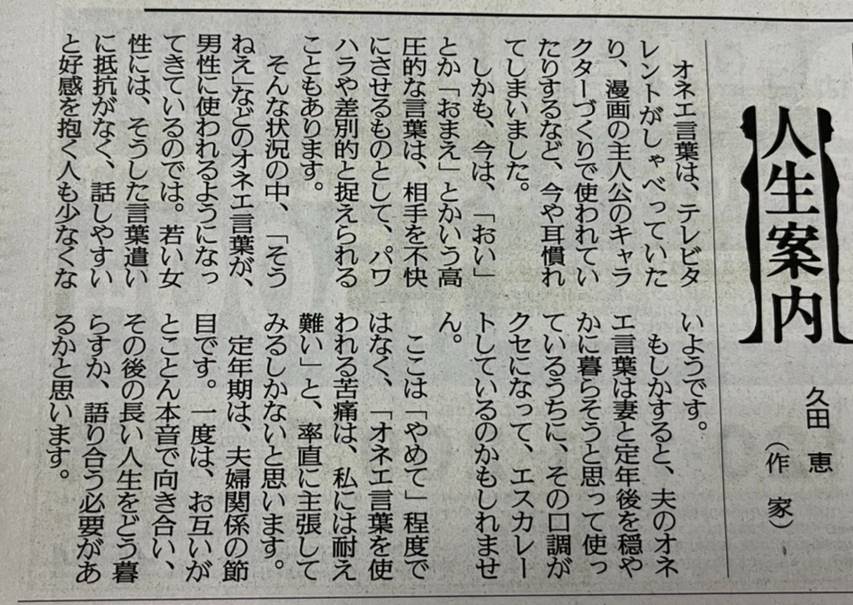 人生案内
久田 恵
（作 家）
オネエ言葉は、テレビタ
レントがしゃべっていた
り、漫画の主人公のキャラ
クターづくりで使われてい
たりするなど、今や耳慣れ
てしまいました。
しかも、今は、「おい」
とか「おまえ」とかいう高
圧的な言葉は、相手を不快
にさせるものとして、パワ
ハラや差別的と捉えられる
こともあります。
そんな状況の中、「そう
ねえ」などのオネエ言葉が、
男性に使われるようになっ
てきているのでは。若い女
性には、そうした言葉遣い
に抵抗がなく、話しやすい
と好感を抱く人も少なくな
いようです。
もしかすると、夫のオネ
エ言葉は妻と定年後を穏や
かに暮らそうと思って使っ
ているうちに、その口調が
クセになって、エスカレー
トしているのかもしれませ
ん。
ここは「やめて」程度で
はなく、「オネエ言葉を使
われる苦痛は、私には耐え
難い」と、率直に主張して
みるしかないと思います。
定年期は、夫婦関係の節
目です。一度は、お互いが
とことん本音で向き合い、
その後の長い人生をどう暮
らすか、語り合う必要があ
るかと思います。